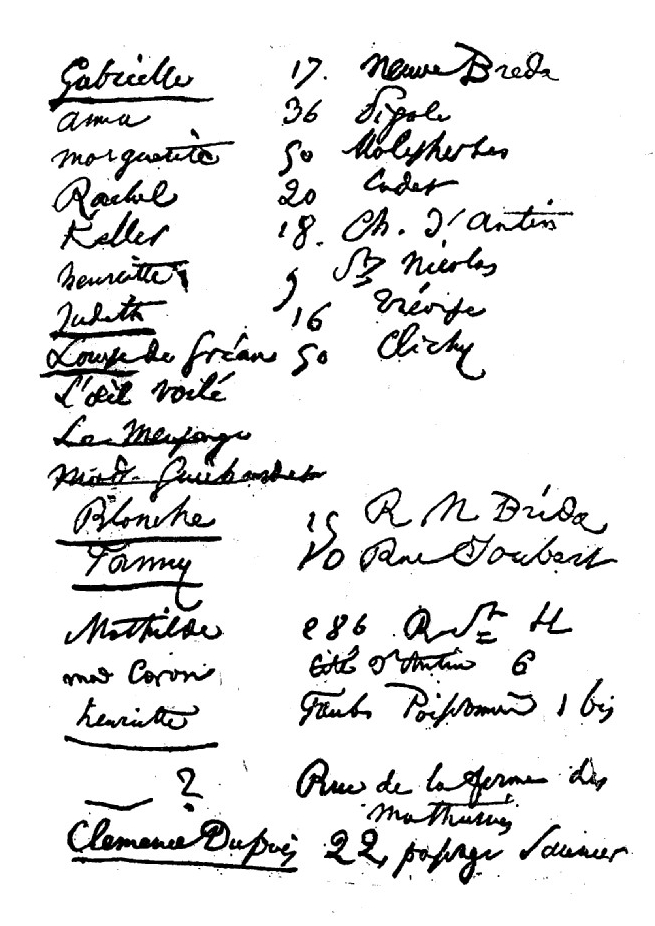 Gabrielle 17. Neuve Breda
anna 36 Pigale
marguerite 50 Malesherbes
Rachel 20 Cadet
Keller 18. Ch. d'Antin
henriette 9 St Nicolas
Judith 16 Trévise
Louise de Gréan 50 Clichy
L'œil voilé
La Mensonge
Mad. Guichardet
Blanche 15 R N Bréda
Fanny 10 Rue Joubert
Mathilde 286 R St H
mad Coron Cité d'Antin 6
henriette Faubs Poissonnièr 1 bis
? Rue de la ferme des
mathurins
Clemence Dupuis 22, passage Saunier